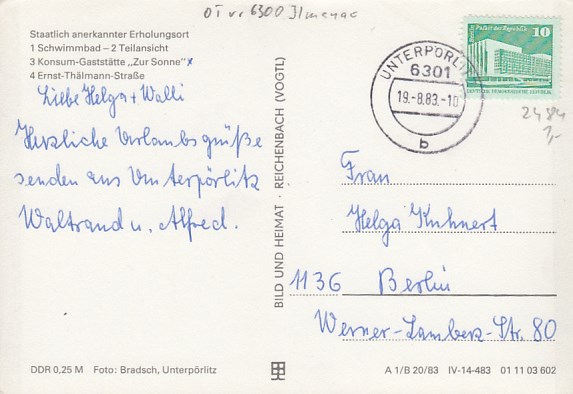 OT v. 6300 Ilmenau
Staatlich anerkannter Erholungsort
1 Schwimmbad – 2 Teilansicht
3 Konsum-Gaststätte „Zur Sonne" x
4 Ernst-Thälmann-Straße
Liebe Helga + Walli
Herzliche Urlaubsgrüße
senden aus Unterpörlitz
Waltraud u. Alfred.
BILD UND HEIMAT · REICHENBACH (VOGTL)
UNTERPÖRLITZ
6301
19.-8.83.-10
b
Palast der Republik
10
2484
Frau
Helga Kuhnert
1136 Berlin
Werner-Lamberz-Str. 80
DDR 0,25 M Foto: Bradsch, Unterpörlitz
A 1/B 20/83 IV-14-483 01 11 03 602